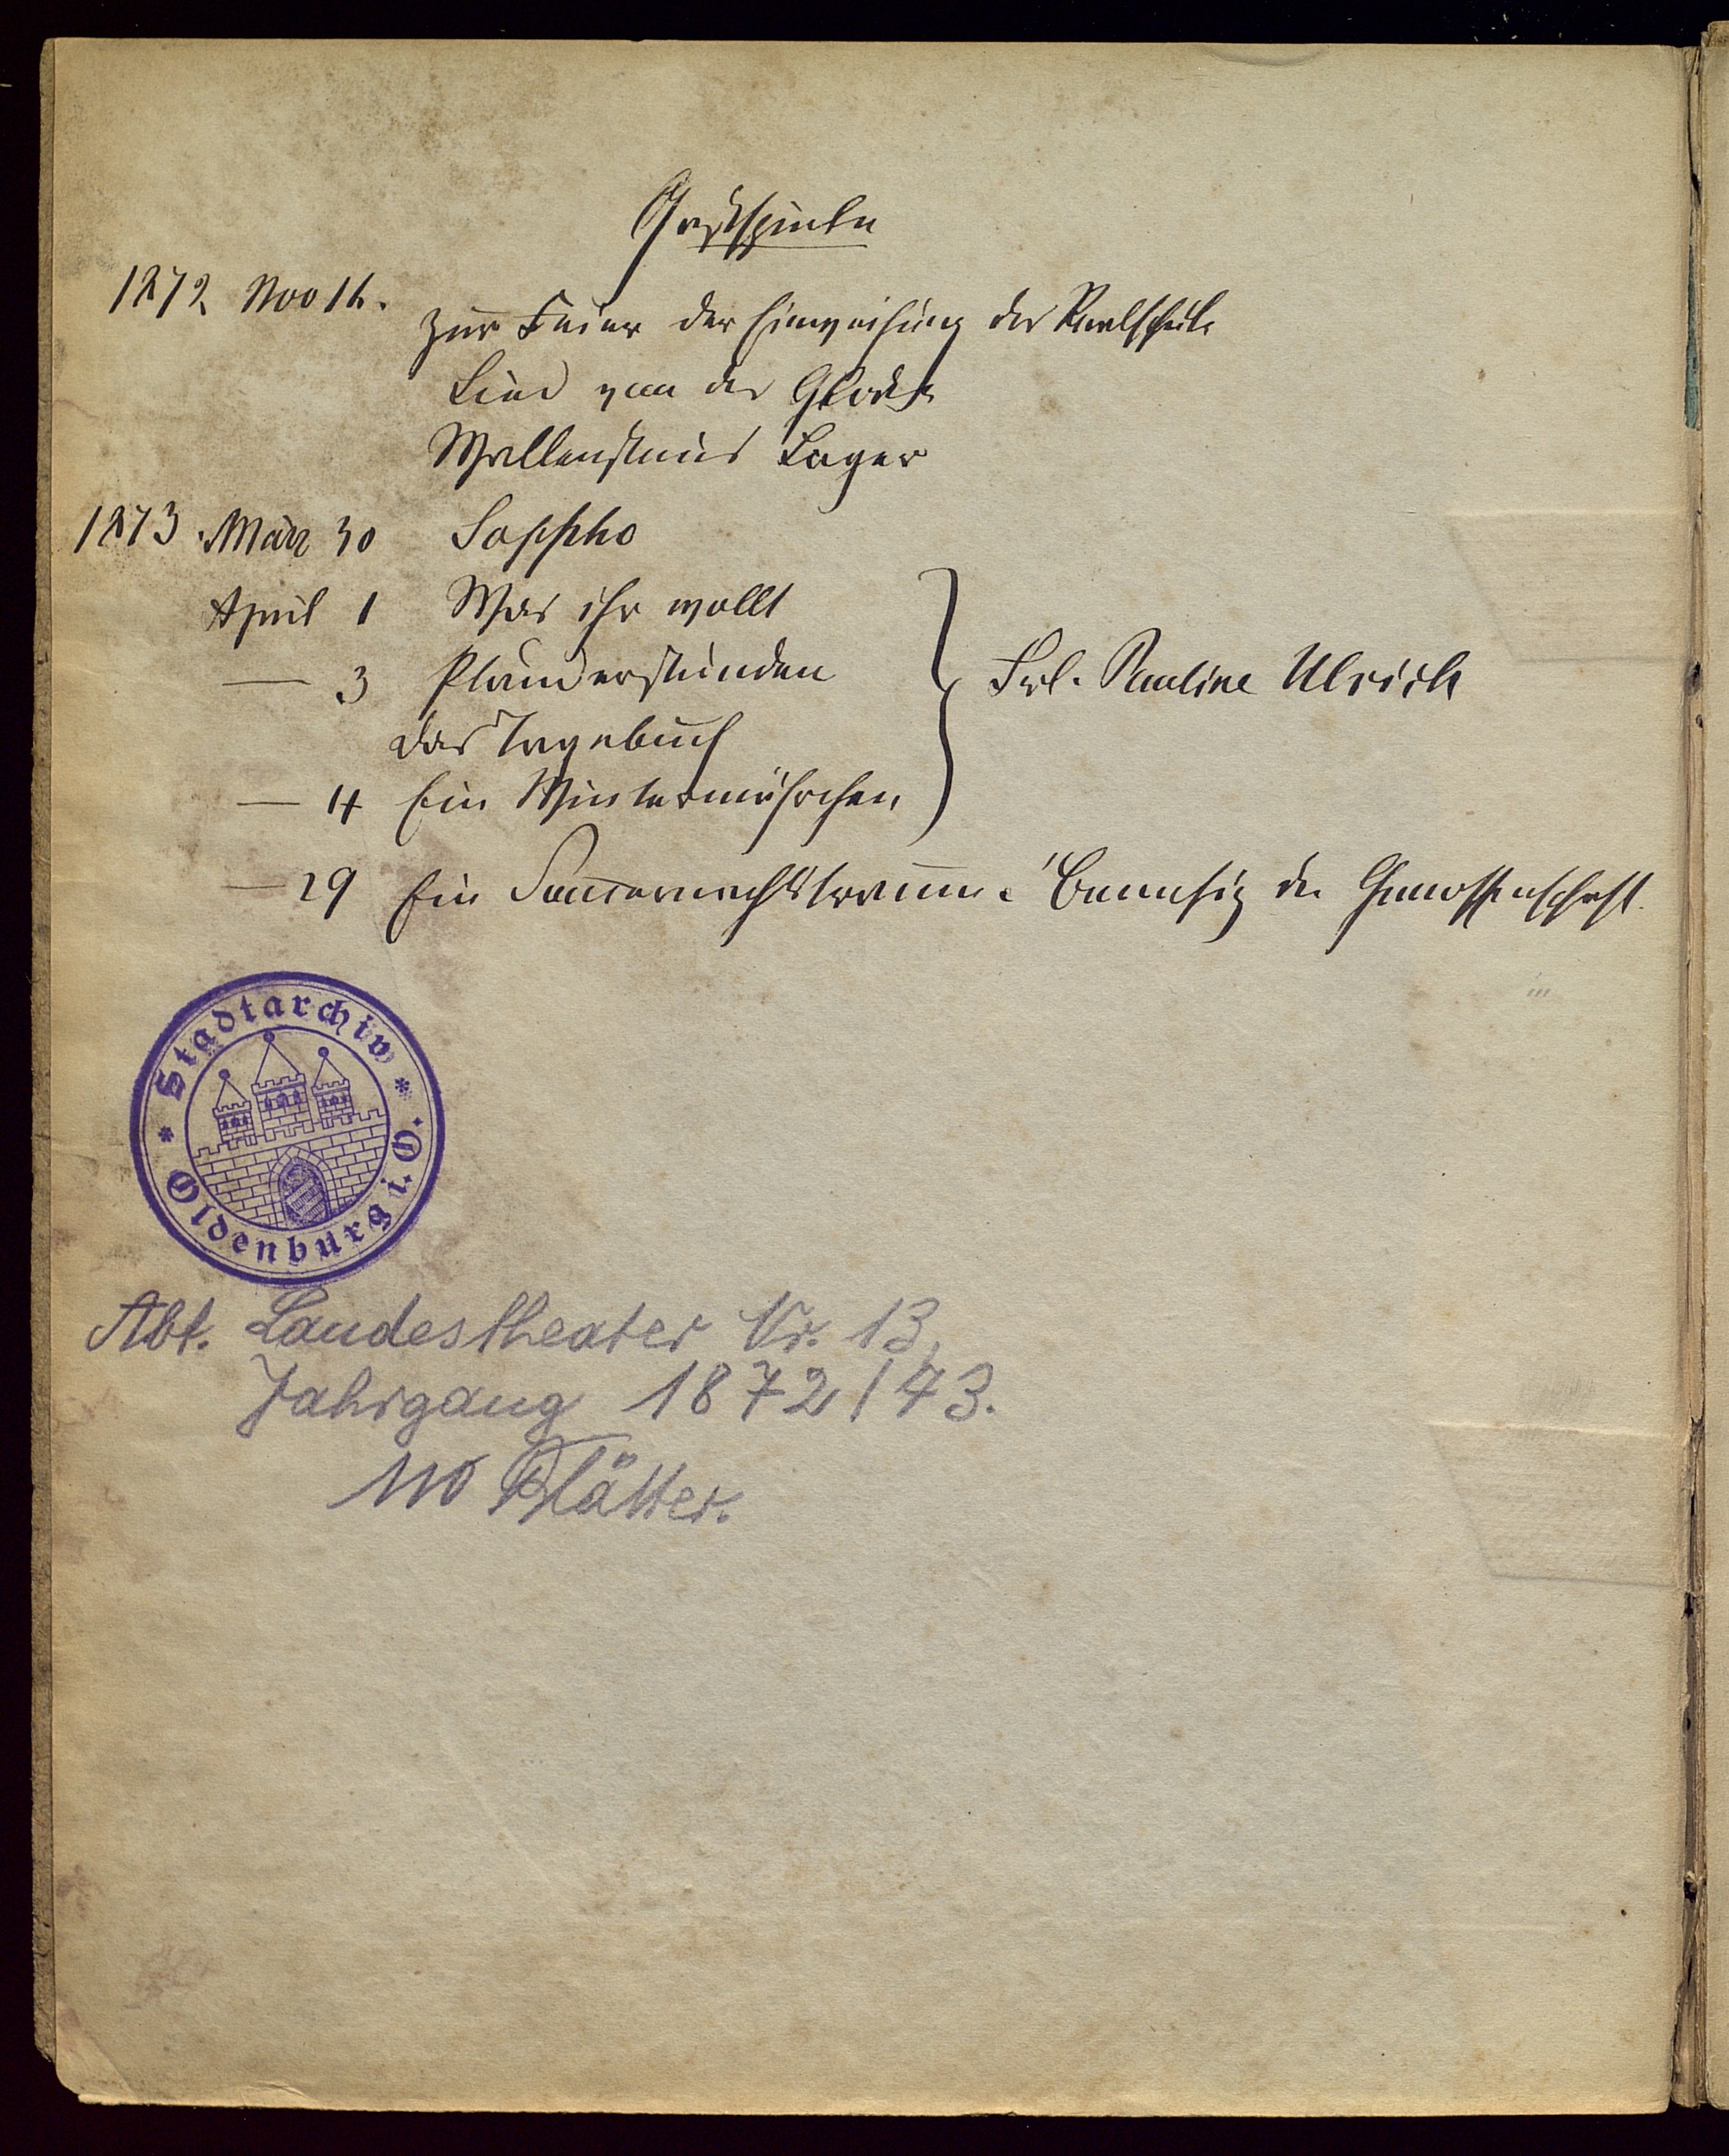 Gastspiele
1872 Nov 16.
Zur Feier der Einweihung der Realschule
Lied von der Glocke
Wallensteins Lager
1873 März 30 Sappho
April 1 Was ihr wollt
— 3 Plauderstunden
Frl. Pauline Ulrich
das Tagebuch
— 4 Ein Wintermährchen
— 29 Ein Sommernachtstraum. der Genossenschaft.
Stadtarchiv
Oldenburg i. O.
Abt. Landestheater Nr. 13,
Jahrgang 1872/73.
110 Blätter.